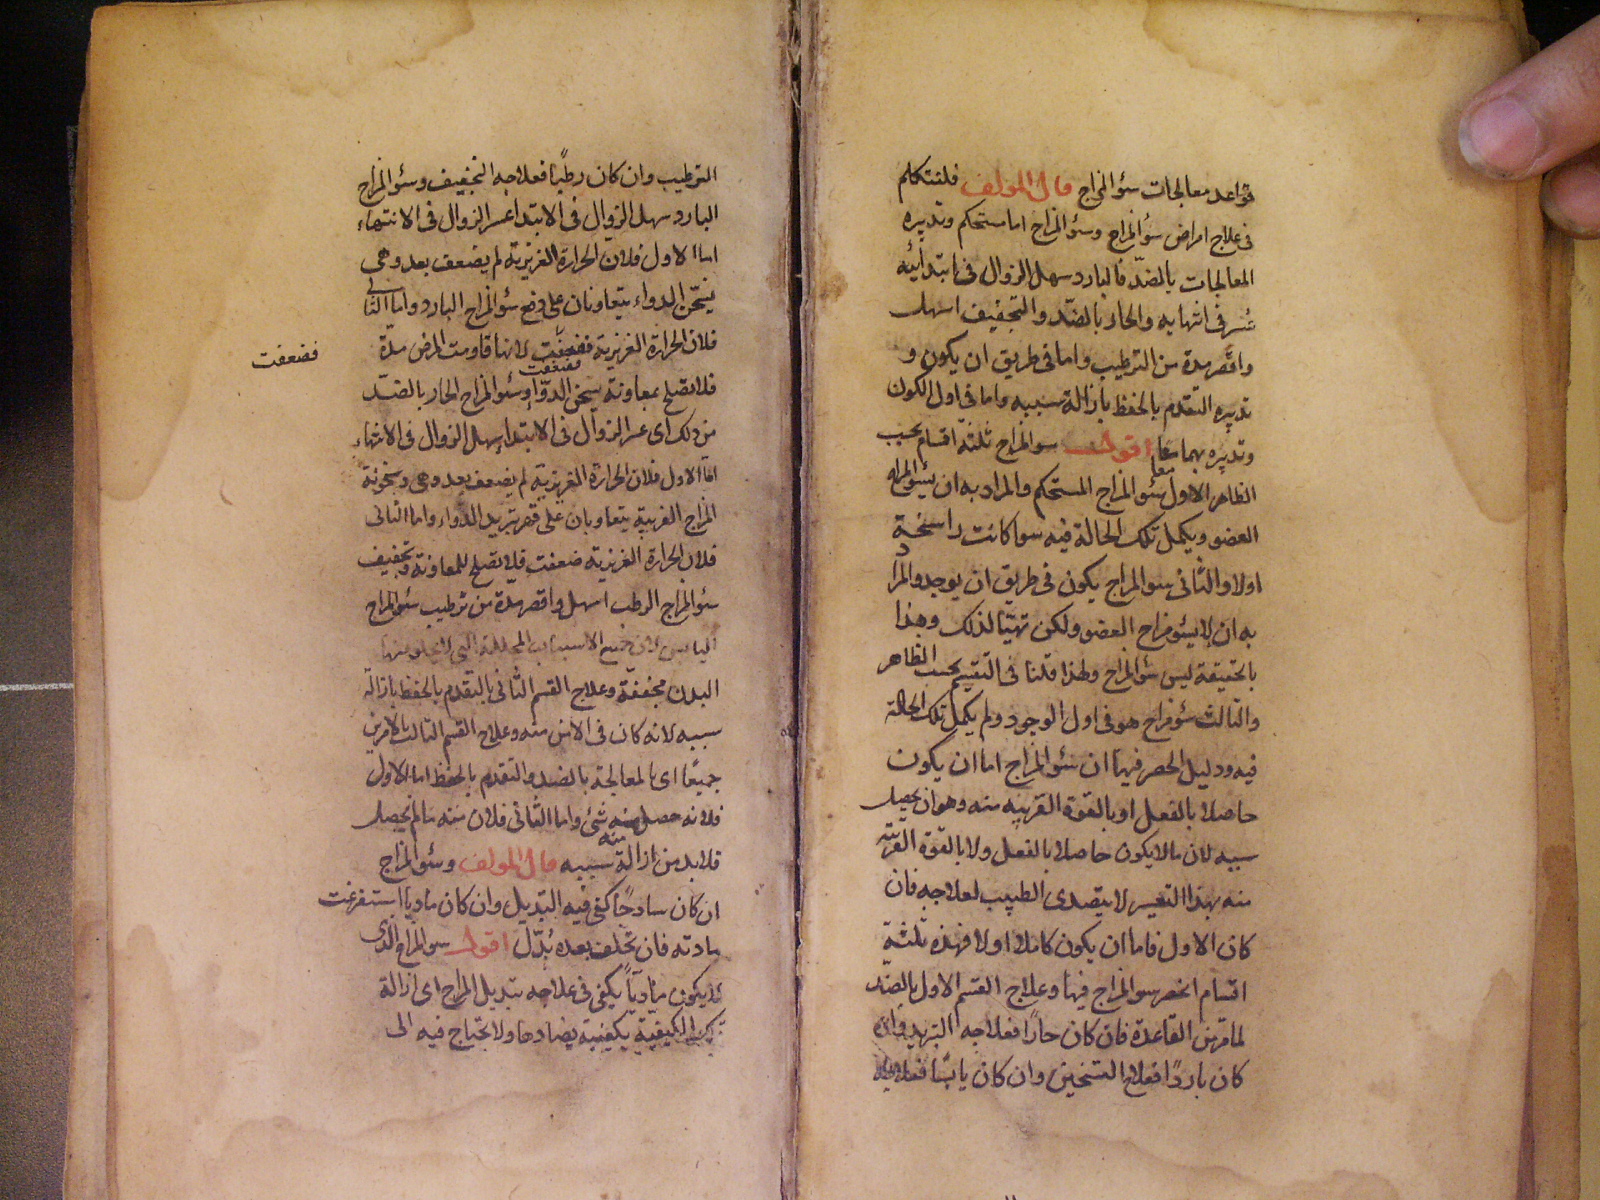 قواعد معالجات سئو المزاج قال المولف فلنتكلم
فى علاج امراض سؤ المزاج وسؤ المزاج اما مستحكم وتدبيره
المعالجات بالضد فالبارد سهل الزوال فى ابتدائيه
عسر فى انتهايه والحار بالضد والتجفيف اسهل
واقصر مدة من الترطيب واما فى طريق ان يكون و
تدبيره التقدم بالحفظ بازالة سببه واما فى اول الكون
وتدبيره بهما معا اقول سو المزاج ثلثة اقسام بحسب
معا
الظاهر الاول سئو المزاج المستحكم والمراد به ان يسئو المزاج
العضو ويكمل تلك الحالة فيه سوا كانت راسخة
اولا والثانى سو المزاج يكون فى طريق ان يوجد والمراد
به ان لا يسئو مزاج العضو ولكن تهيّا لذلك وهذا
بالحقيقة ليس سئو المزاج ولهذا قلنا فى التقسيم بحسب الظاهر
والثالث سئو مزاج هو فى اول الوجود ولم يكمل تلك الحالة
فيه ودليل الحصر فيها ان سئو المزاج اما ان يكون
حاصلا بالفعل او بالقوة القريبه منه وهو ان يحصل
سببه لان مالا يكون حاصلا بالفعل ولا بالقوة القريبة
منه بهذا التفسير لا يتصدى الطبيب لعلاجه فان
كان الاول فاما ان يكون كاملا اولا فهذه ثلثة
اقسام انحصر سو المزاج فيها وعلاج القسم الاول بالضد
لما مر من القاعدة فان كان حارا فعلاجه التبريد وان
كان باردا فعلاج التسخين وان كان يابسا فعلاجه
الترطيب وان كان رطبًا فعلاجه التجفيف وسئو المزاج
البارد سهل الزوال فى الابتدا عسر الزوال فى الانتهاء
اما الاول فلان الحرارة الغريزية لم يضعف بعد وهى
يسخن الدواء يتعاونان على دفع سئو المزاج البارد واما الثانى
فلان الحرارة الغريزية فضعفت لانها قاومت المرض مدة
فضعفت
فضعفت
فلا تصلح بمعاونة يسخن الدواء وسئو المزاج الحار بالضد
من ذلك اى عسر الزوال فى الابتدا سهل الزوال فى الانتهاء
اما الاول فلان الحرارة الغريزية لم يضعف بعد وهى وسخونة
المزاج الغريبة يتعاونان على قهر تبريد الدواء واما الثانى
فلان الحرارة الغريزية ضعفت فلا تصلح للمعاونة وتجفيف
سئو المزاج الرطب اسهل واقصر مدة من ترطيب سئو المزاج
اليابس لان جميع الاسباب المحللة التى لا يخلو منها
البدن مجففة وعلاج القسم الثانى بالتقدم بالحفظ بازالة
سببه لانه كان فى الامن منه وعلاج القسم الثالث بالامرين
جميعًا اى بالمعالجة بالضد والتقدم بالحفظ اما الاول
فلانه حصل منه شئ واما الثانى فلان منه مالم يحصل
منه
فلا بد من ازالة سببه قال المولف وسئو المزاج
ان كان ساذجًا كفى فيه التبديل وان كان ماديا استفرغت
مادته فان تخلف بعده بُدّل اقول سو المزاج الذى
لا يكون ماديّا يكفى فى علاجه تبديل المزاج اى ازالة
تلك الكيفية بكيفية يضادها ولا يحتاج فيه الى